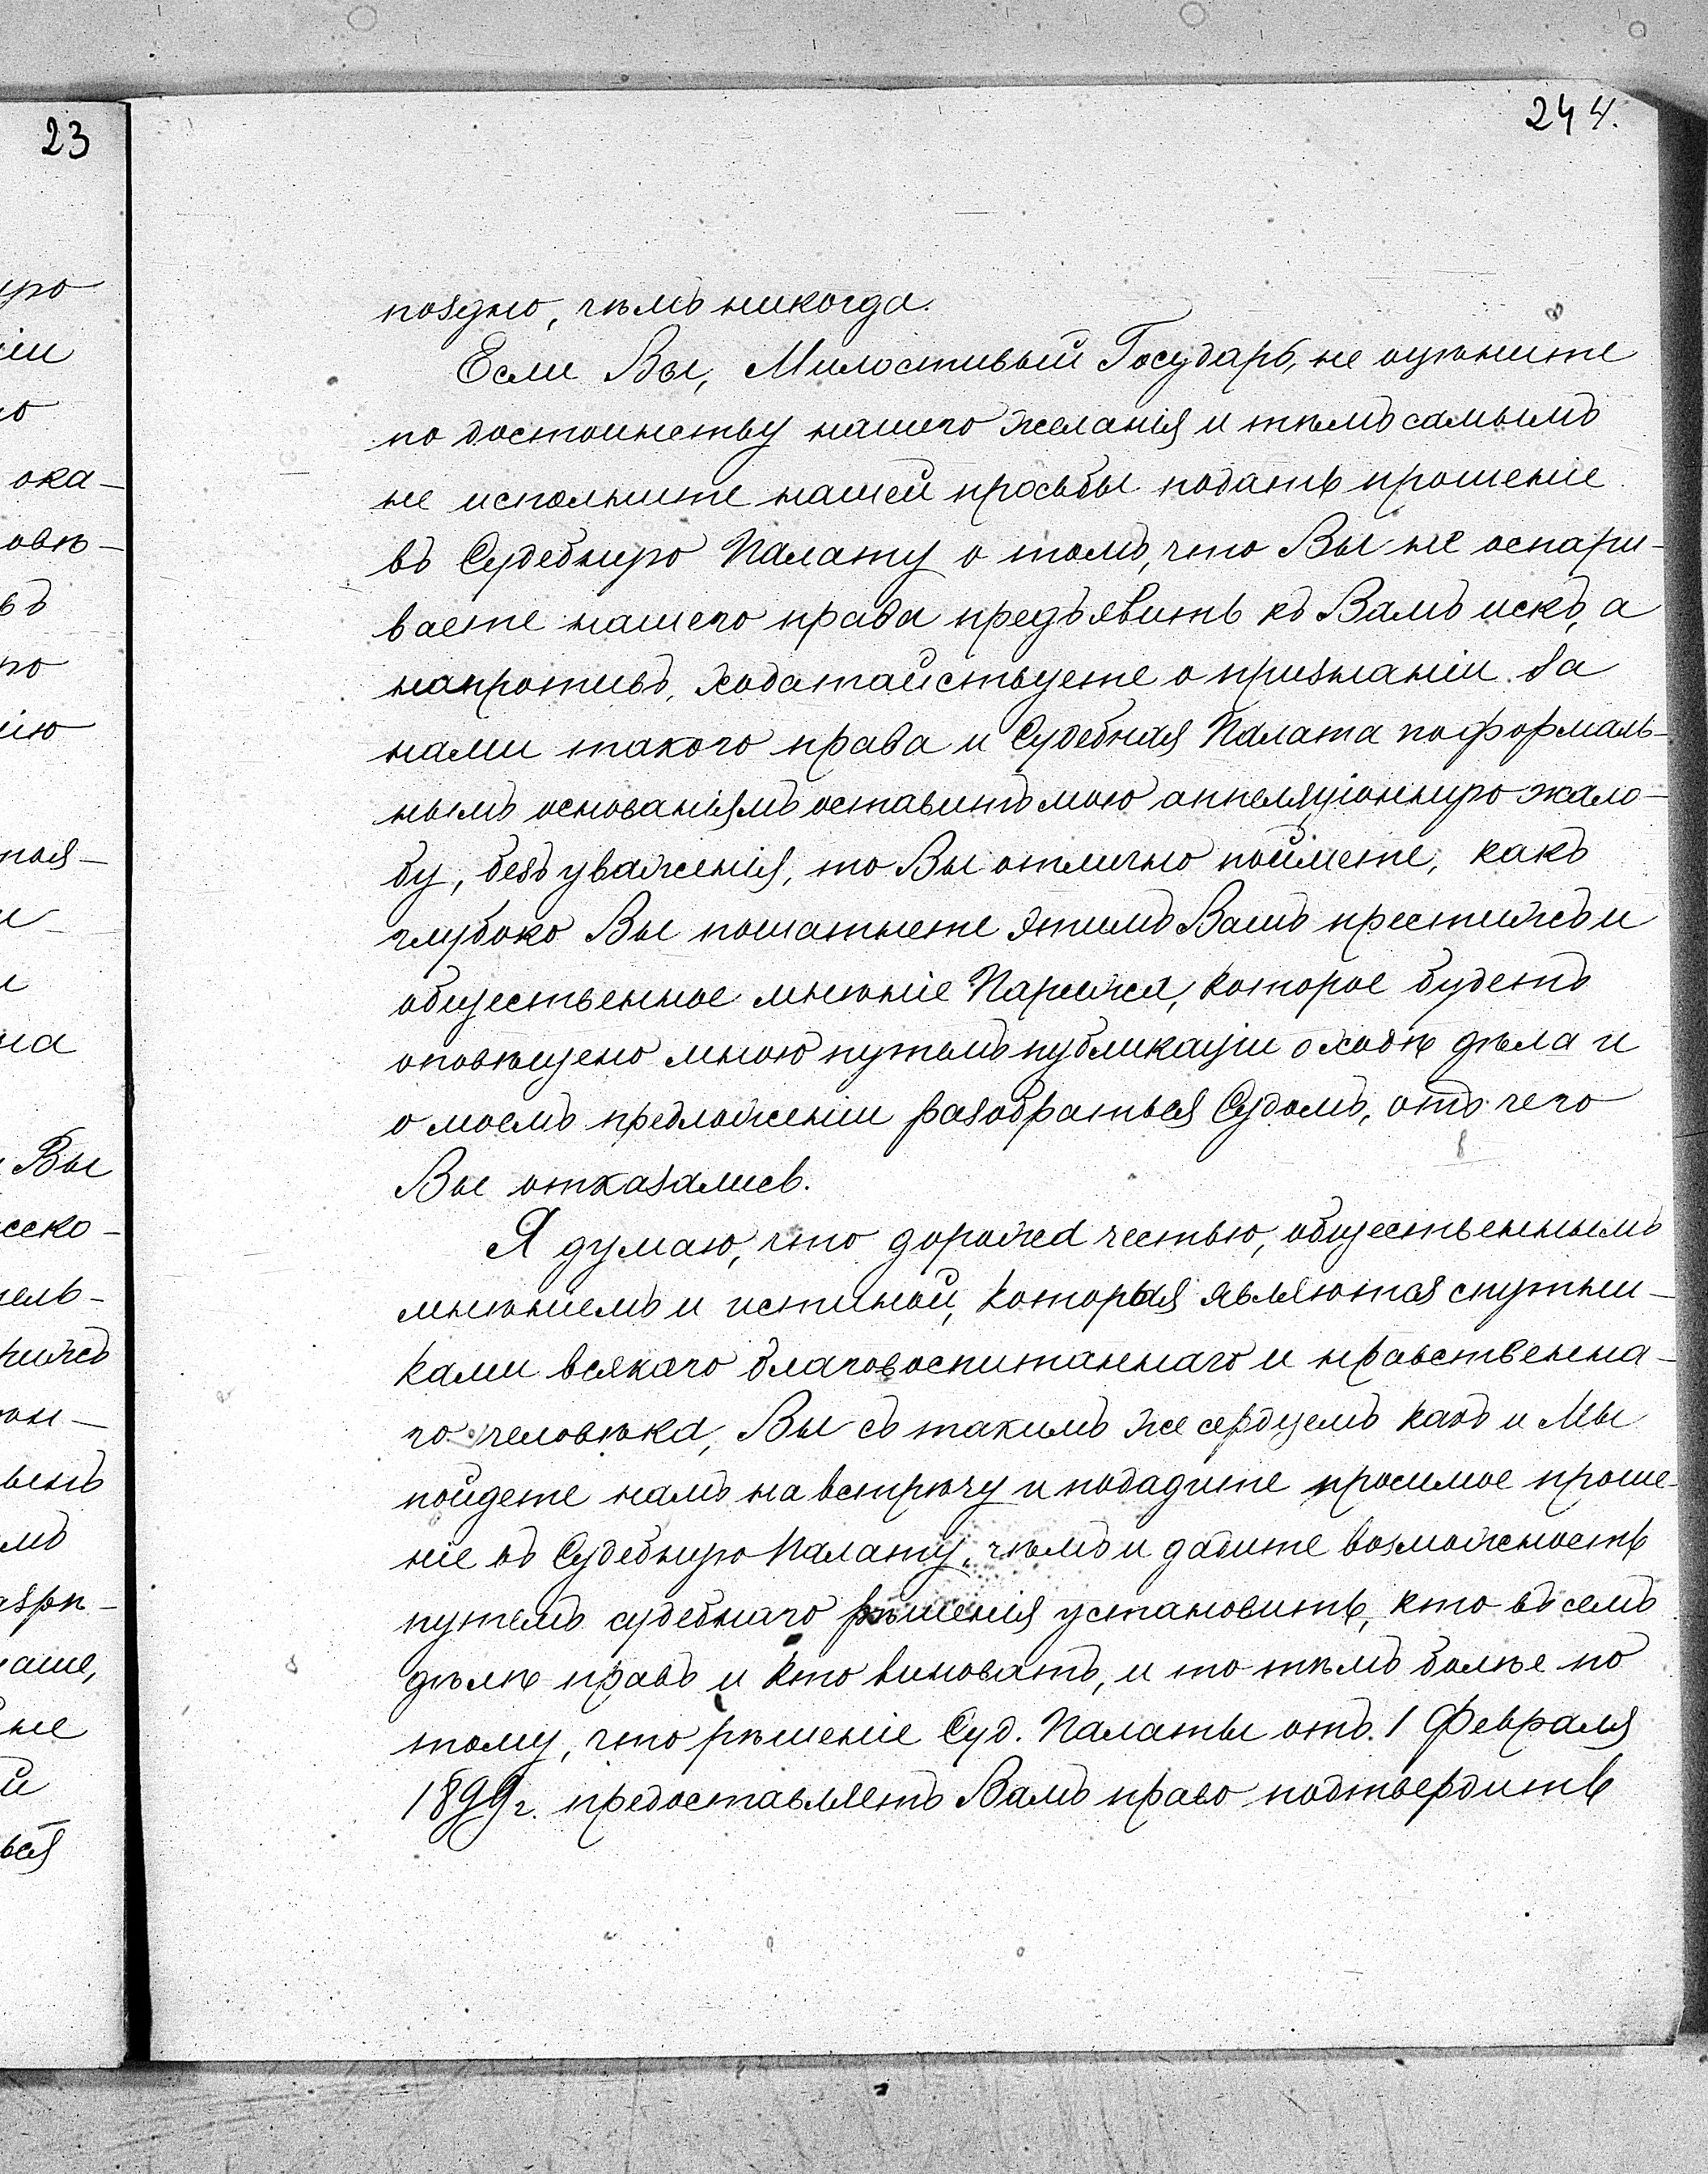 23
244.
поздно, чѣмъ никогда.
Если Вы, Милостивый Государь, не оцѣните
по достоинству нашего желанія и тѣмъ самымъ
не исполните нашей просьбы подать прошеніе
въ Судебную Палату о томъ, что Вы не оспари-
ваете нашего права предъявить къ Вамъ искъ, а
напротивъ, ходатайствуете о признаніи за
нами такого права и Судебная Палата по формаль-
нымъ основаніямъ оставитъ мою аппеляціонную жало-
бу, безъ уваженія, то Вы отлично поймете, какъ
глубоко Вы пошатнете этимъ Вашъ престижъ и
общественное мнѣніе Парижа, которое будетъ
оповѣщено мною путемъ публикаціи о ходѣ дѣла и
о моемъ предложеніи разобраться Судомъ, отъ чего
Вы отказались.
Я думаю, что дорожа честью, общественнымъ
мнѣніемъ и истиной, которыя являются спутни-
ками всякаго благовоспитаннаго и нравственна-
го человѣка, Вы съ такимъ же сердцемъ какъ и Мы
пойдете намъ на встрѣчу и подадите просимое проше-
ніе въ Судебную Палату, чѣмъ и дадите возможность
путемъ судебнаго рѣшенія установить, кто въ семъ
дѣлѣ правъ и кто виноватъ, и то тѣмъ болѣе по
тому, что рѣшеніе Суд. Палаты отъ 1 Февраля
1899 г. предоставляетъ Вамъ право подтвердить